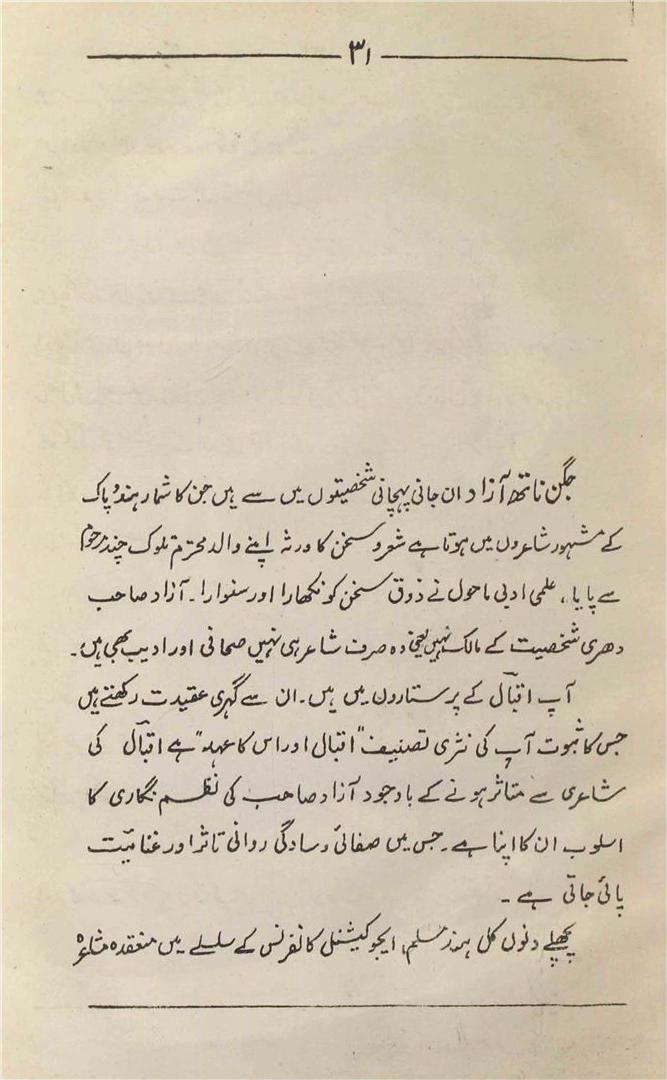 ۳۱
جگن ناتھ آزاد ان جانی پہچانی شخصیتوں میں سے ہیں جن کا شمار ہند و پاک
کے مشہور شاعروں میں ہوتا ہے شعر و سخن کا ورثہ اپنے والد محترم تلوک چند مرحوم
سے پایا، علمی ادبی ماحول نے ذوق سخن کو نکھارا اور سنوارا۔ آزاد صاحب
دھری شخصیت کے مالک نہیں یعنی وہ صرف شاعر ہی نہیں صحافی اور ادیب بھی ہیں۔
آپ اقبال کے پرستاروں میں ہیں۔ ان سے گہری عقیدت رکھتے ہیں
جس کا ثبوت آپ کی نثری تصنیف "اقبال اور اس کا عہد" ہے اقبال کی
شاعری سے متاثر ہونے کے باوجود آزاد صاحب کی نظم نگاری کا
اسلوب ان کا اپنا ہے۔ جس میں صفائی و سادگی روانی تاثر اور غنائیت
پائی جاتی ہے ۔
پچھلے دنوں کل ہند مسلم ایجوکیشنل کانفرنس کے سلسلے میں منعقدہ مشاعرہ